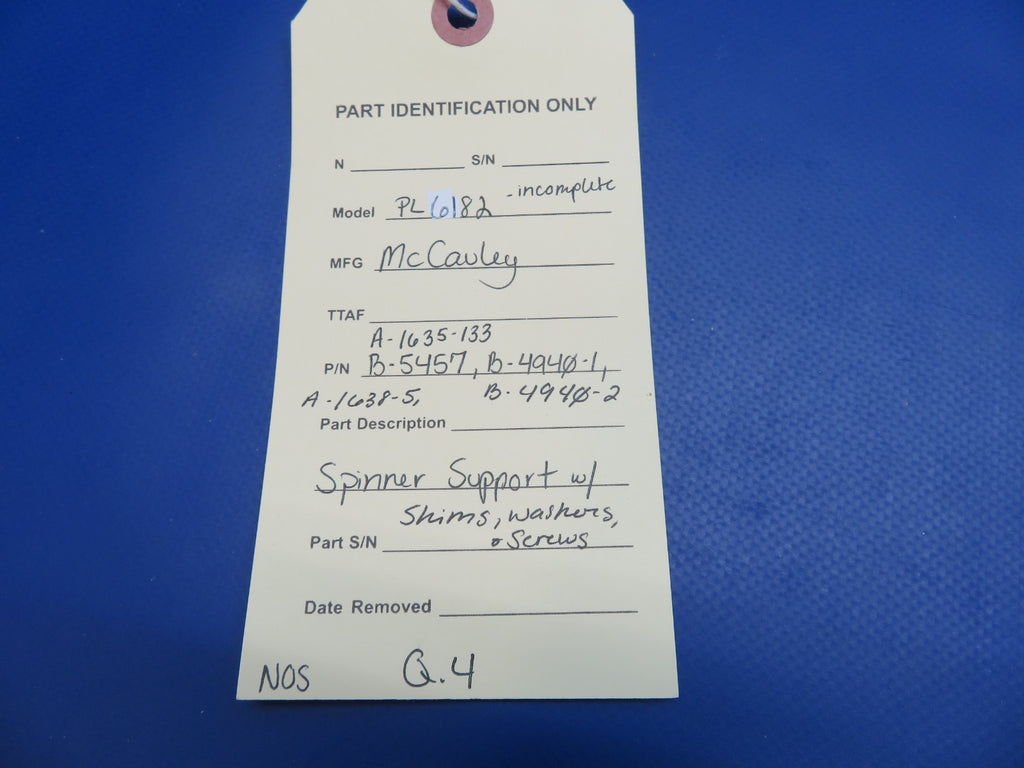 PART IDENTIFICATION ONLY
N S/N
- incomplete
Model PL6182
MFG McCauley
TTAF
A-1635-133
P/N B-5457, B-4940-1,
A-1638-5, B-4940-2
Part Description
Spinner Support w/
Shims, washers,
Part S/N & Screws
Date Removed
NOS Q.4